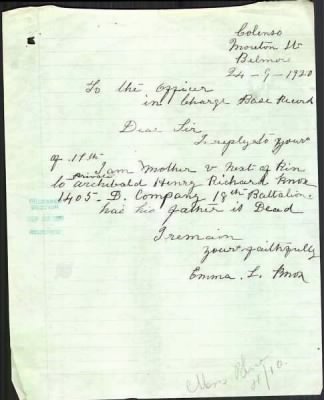 Colenso
Moreton St
Belmore
24-9-1920
To the Officer
in Charge Base Record
Dear Sir
I reply to your
of 17th
I am Mother & Next of Kin
to Private Archibald Henry Richard Knox
1405 - D. Company 18th Battalion.
has his father is Dead
I remain
yours faithfully
Emma. L. Knox